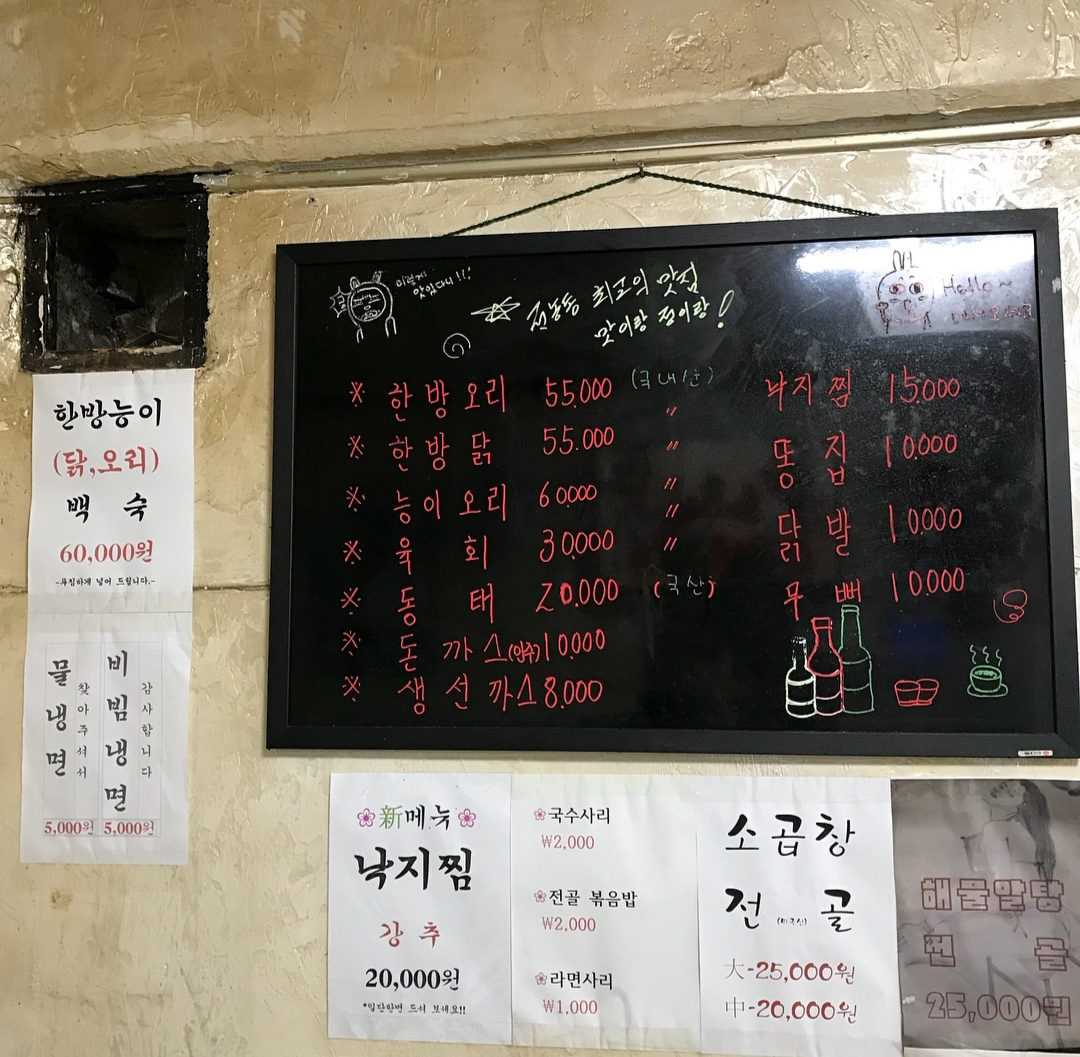 이렇게
맛있다니!!!
전농동 최고의 맛집
맛이랑 정이랑!
Hello~
※ 한방오리 55.000 (국내산)
※ 한방 닭 55.000 〃
※ 능이오리 60.000 〃
※ 육 회 30.000 〃
※ 동 태 20.000
※ 돈 까스(안주) 10.000 (국산)
※ 생선까스 8.000
낙지찜 15.000
똥 집 10.000
닭 발 10.000
무 뼈 10.000
한방능이
(닭,오리)
백 숙
60,000원
-푸짐하게 넣어 드립니다.-
물냉면
찾아주셔서
비빔냉면
감사합니다
5,000원 5,000원
新메뉴
낙지찜
강 추
20,000원
*일단한번 드셔 보세요!!
국수사리
₩2,000
전골 볶음밥
₩2,000
라면사리
₩1,000
소곱창
전 (미국산) 골
大-25,000원
中-20,000원
해물알탕
전 골
25,000원